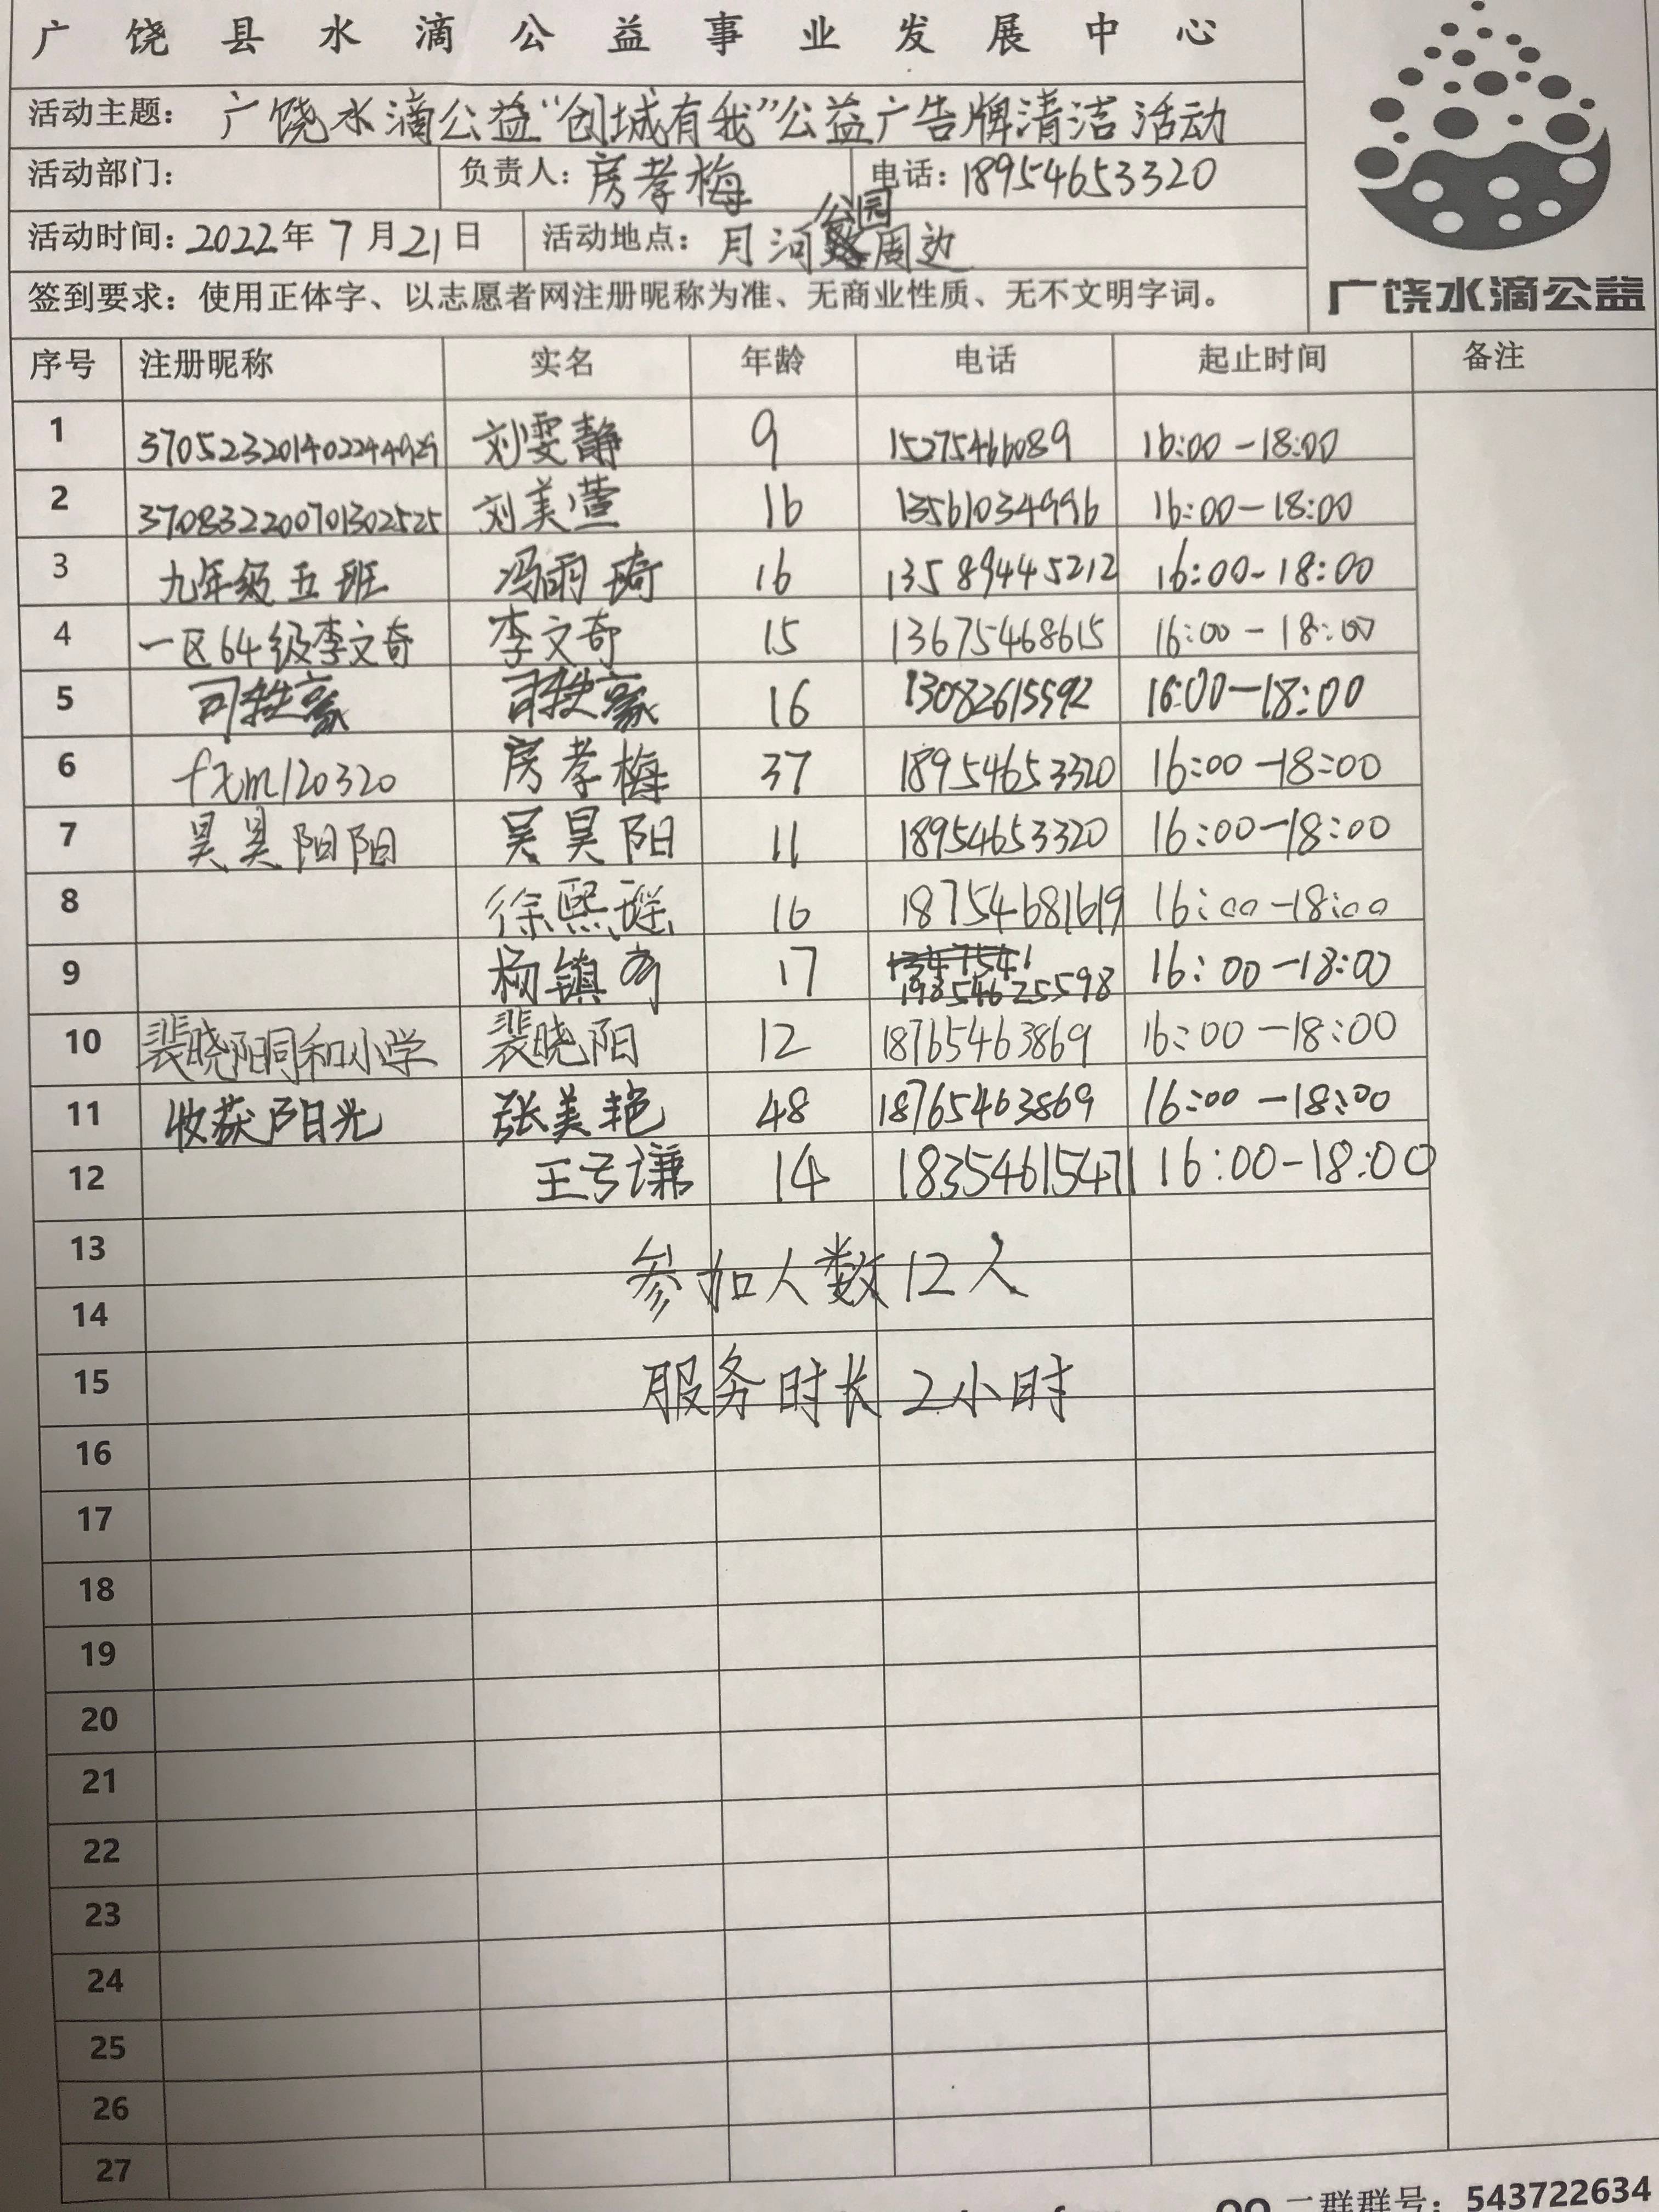 广饶县水滴公益事业发展中心
活动主题：广饶水滴公益“创城有我”公益广告牌清洁活动
活动部门： 负责人：房孝梅 电话：18954653320
公园
活动时间：2022年7月21日 活动地点：月河周边
签到要求：使用正体字、以志愿者网注册昵称为准、无商业性质、无不文明字词。
广饶水滴公益
序号 注册昵称 实名 年龄 电话 起止时间 备注
1 刘雯静 9 15275466089 16:00-18:00
2 370832200701302525 刘美萱 16 13561034996 16:00-18:00
3 九年级五班 冯雨琦 16 13589445212 16:00-18:00
4 一区64级李文奇 李文奇 15 13675468615 16:00-18:00
5 司轶豪 司轶豪 16 13082615592 16:00-18:00
6 fxm120320 房孝梅 37 18954653320 16:00-18:00
7 昊昊阳阳 吴昊阳 11 18954653320 16:00-18:00
8 徐熙瑶 16 18754681619 16:00-18:00
9 杨镇 17 19854625598 16:00-18:00
10 裴晓阳同和小学 裴晓阳 12 18765463869 16:00-18:00
11 收获阳光 张美艳 48 18765463869 16:00-18:00
12 王谦 14 18354615471 16:00-18:00
13
参加人数12人
14
15 服务时长2小时
16
17
18
19
20
21
22
23
24
25
26
27
QQ二群群号：543722634